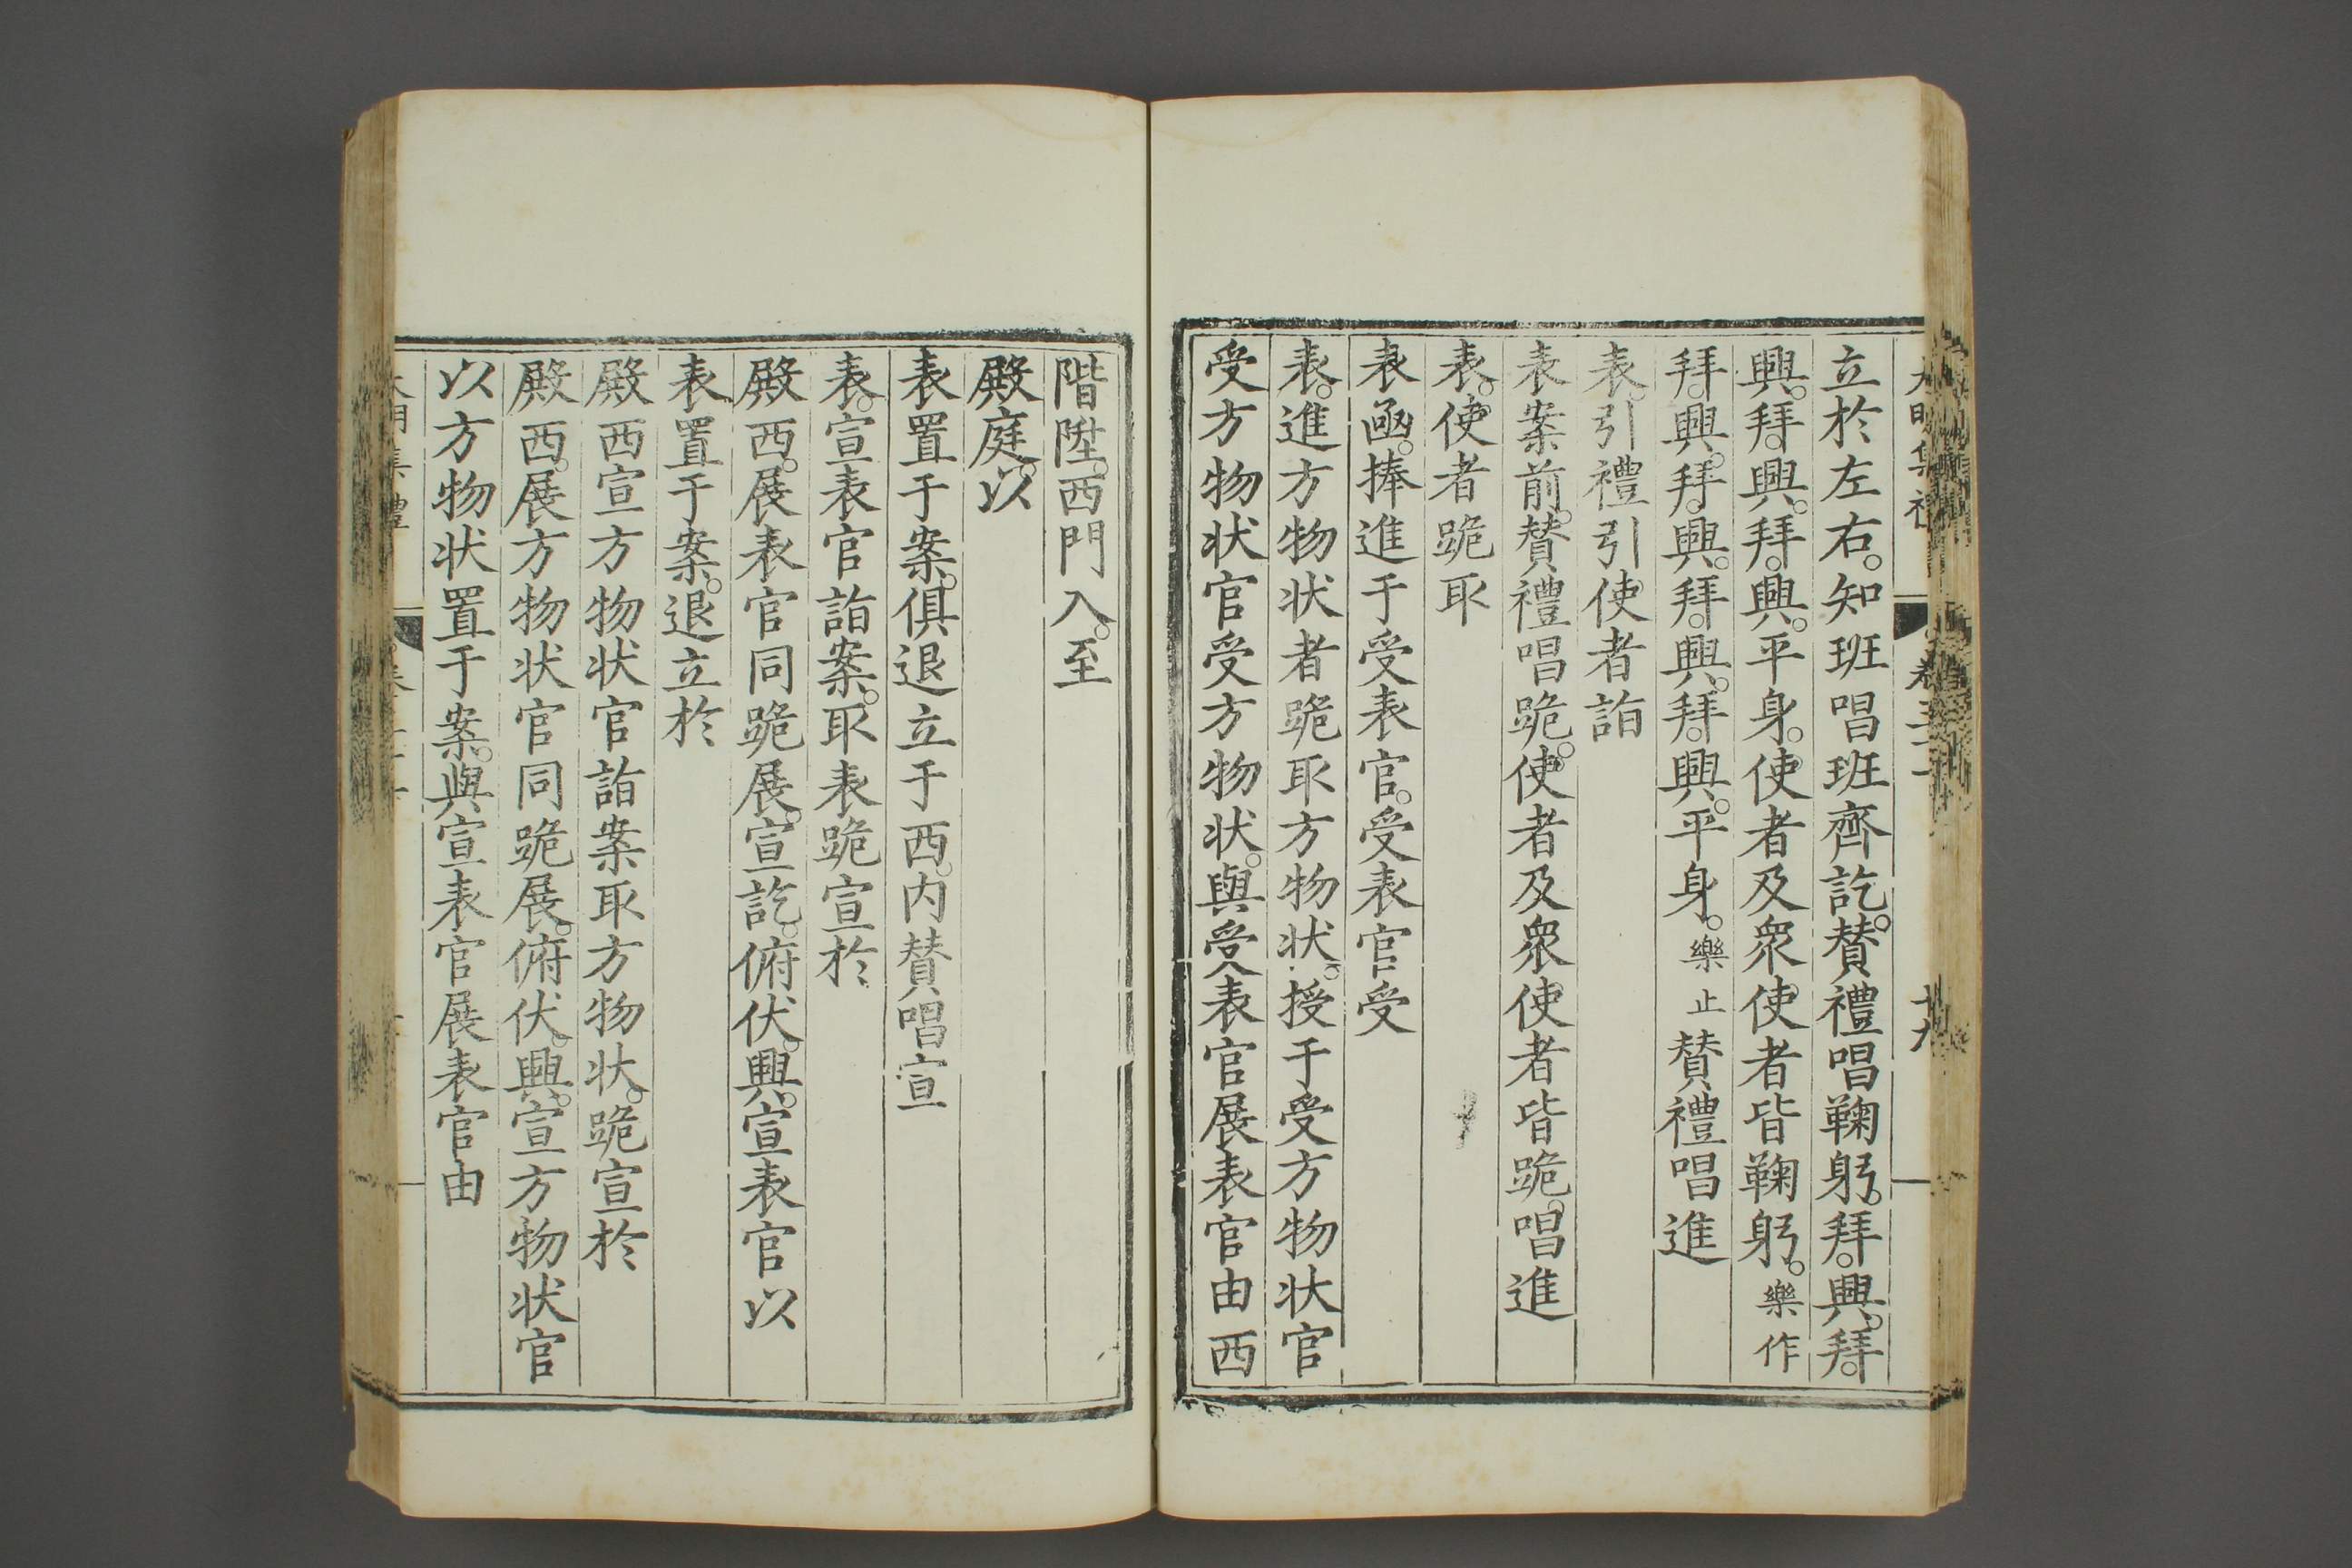 立於左右。知班唱班齊訖。賛禮唱鞠躬。拜。興。拜。
興。拜。興。拜。興。平身。使者及衆使者皆鞠躬。樂作
拜。興。拜。興。拜。興。拜。興。平身。樂止賛禮唱進
表。引禮引使者詣
表案前。賛禮唱跪。使者及衆使者皆跪。唱進
表。使者跪取
表凾。捧進于受表官。受表官受
表。進方物状者跪取方物状。授于受方物状官
受方物状官受方物状。與受表官展表官由西
階陞。西門入。至
殿庭。以
表置于案。俱退立于西。内賛唱宣
表。宣表官詣案。取表跪宣於
殿西。展表官同跪展。宣訖。俯伏。興。宣表官以
表置于案。退立於
殿西宣方物状官詣案取方物状。跪宣於
殿西。展方物状官同跪展。俯伏。興。宣方物状官
以方物状置于案。與宣表官展表官由